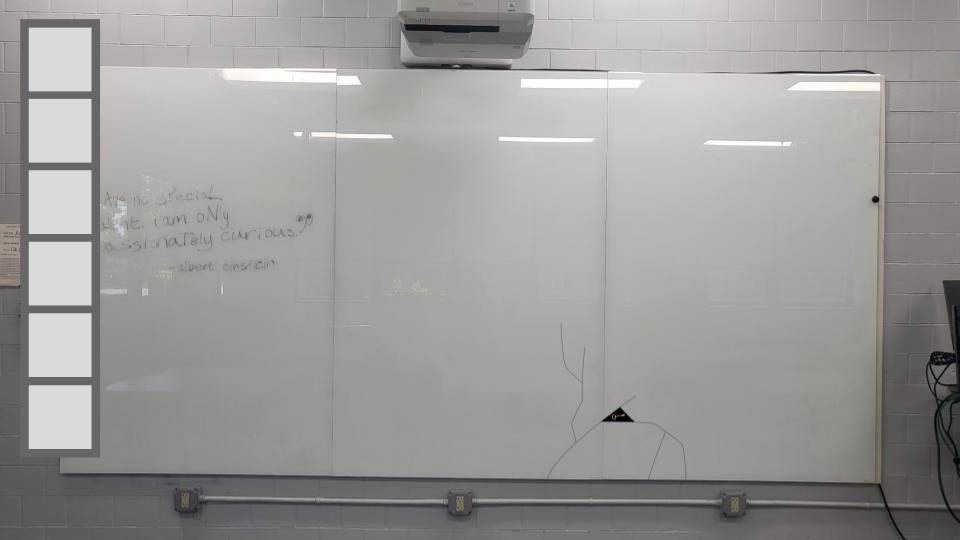 Are no special
talent. i am oNly
passionately curious."
- albert einstein